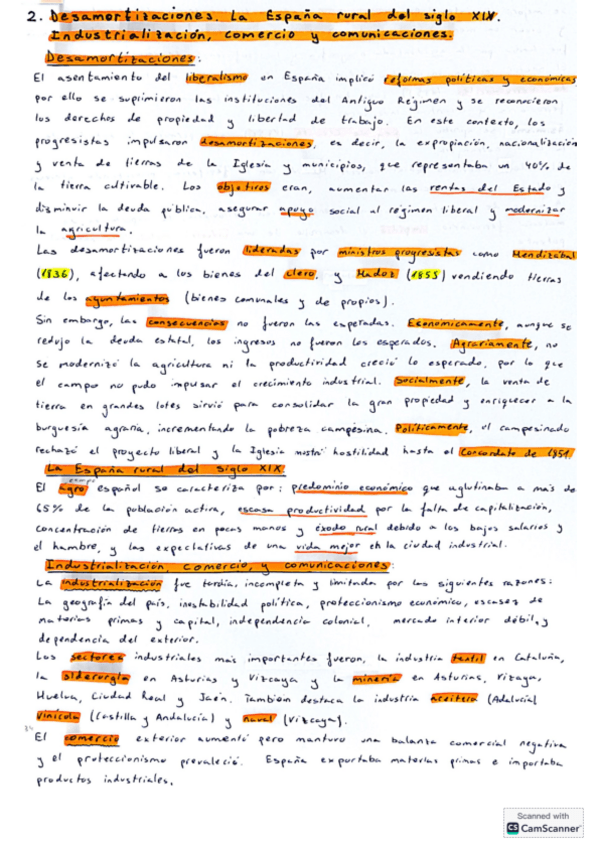 2. Desamortizaciones. La España rural del siglo XIX.
Industrialización, comercio y comunicaciones.
Desamortizaciones:
El asentamiento del liberalismo en España implicó reformas políticas y económicas
por ello se suprimieron las instituciones del Antiguo Régimen y se reconocieron
los derechos de propiedad y libertad de trabajo. En este contexto, los
progresistas impulsaron desamortizaciones, es decir, la expropiación, nacionalización
y venta de tierras de la Iglesia y municipios, que representaba un 40% de
la tierra cultivable. Los objetivos eran, aumentar las rentas del Estado y
disminuir la deuda pública, asegurar apoyo social al régimen liberal y modernizar
la agricultura.
Las desamortizaciones fueron lideradas por ministros progresistas como Mendizábal
(1836), afectando a los bienes del clero, y Madoz (1855) vendiendo tierras
de los ayuntamientos (bienes comunales y de propios).
Sin embargo, las consecuencias no fueron las esperadas. Económicamente, aunque se
redujo la deuda estatal, los ingresos no fueron los esperados. Agrariamente, no
se modernizó la agricultura ni la productividad creció lo esperado, por lo que
el campo no pudo impulsar el crecimiento industrial. Socialmente, la venta de
tierra en grandes lotes sirvió para consolidar la gran propiedad y enriquecer a la
burguesía agraria, incrementando la pobreza campesina. Políticamente, el campesinado
rechazó el proyecto liberal y la Iglesia mostró hostilidad hasta el Concordato de 1851.
La España rural del siglo XIX
campo
El agro español se caracteriza por: predominio económico que aglutinaba a más de
65% de la población activa, escasa productividad por la falta de capitalización,
concentración de tierras en pocas manos y éxodo rural debido a los bajos salarios y
el hambre, y las expectativas de una vida mejor en la ciudad industrial.
Industrialitación, comercio, y comunicaciones:
La industrialización fue tardía, incompleta y limitada por las siguientes razones:
La geografía del país, inestabilidad política, proteccionismo económico, escasez de
materias primas y capital, independencia colonial, mercado interior débil, y
dependencia del exterior.
Los sectores industriales más importantes fueron, la industria textil en Cataluña,
la siderurgia en Asturias y Vizcaya y la minería en Asturias, Vizcaya,
Huelva, Ciudad Real y Jaén. También destaca la industria aceitera (Adalucía)
vinícola (Castilla y Andalucía) y naval (Vizcaya).
El comercio exterior aumentó pero mantuvo una balanza comercial negativa
y el proteccionismo prevaleció. España exportaba materias primas e importaba
productos industriales.
Scanned with
CS CamScanner